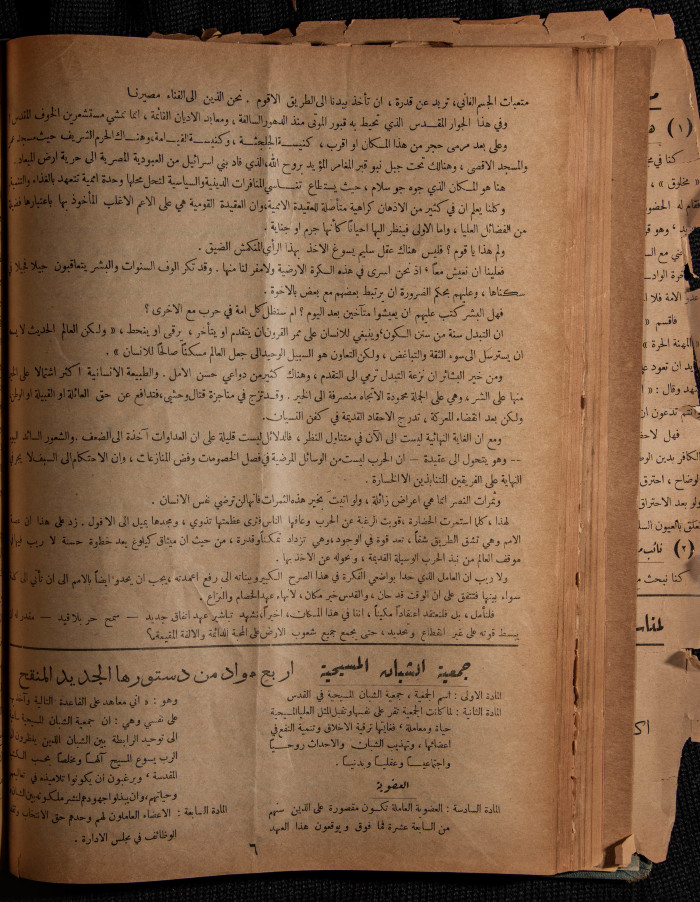 متعبات الجسم الفاني، تريد عن قدرة، ان تأخذ بيدنا الى الطريق الاقوم. نحن الذين الى الفناء مصيرنا
وفي هذا الجوار المقدس الذي تحيط به قبور الموتى منذ الدهور السالفة، ومعابد الاديان القائمة، اننا نمشي مستشعرين الخوف المقدس
وعلى بعد مرمى حجر من هذا المكان او اقرب، كنيسة الجلجثة، وكنيسة القيامة، وهناك الحرم الشريف حيث مسجد
والمسجد الاقصى، وهنالك تحت جبل نبو قبر المغامر المؤيد بروح الله، الذي قاد بني اسرائيل من العبودية المصرية الى حرية ارض الميعاد.
هنا هو المكان الذي جوه جو سلام، حيث يستطاع تناسي المنافرات الدينية والسياسية لتحل محلها وحدة اممية تتعهد بالغذاء
وكلنا يعلم ان في كثير من الاذهان كراهية متأصلة للعقيدة الاممية، وان العقيدة القومية هي على الاعم الاغلب المأخوذ بها باعتبارها
من الفضائل العليا، واما الاولى فينظر اليها احيانًا كأنها جرم او جناية.
ولم هذا يا قوم؟ فليس هناك عقل سليم يسوغ الاخذ بهذا الرأي المتكمش الضيق.
فعلينا ان نعيش معًا، اذ نحن اسرى في هذه السكرة الارضية ولا مفر لنا منها. وقد تكر الوف السنوات والبشر يتعاقبون جيلا
سكناها، وعليهم بحكم الضرورة ان يرتبط بعضهم مع بعض بالاخوة.
فهل البشر كتب عليهم ان يعيشوا متآخين بعد اليوم؟ ام ستظل كل امة في حرب مع الاخرى؟
ان التبدل سنة من سنن الكون، وينبغي للانسان على ممر القرون ان يتقدم او يتأخر، يرقى او ينحط، « ولكن العالم الحديث
ان يسترسل الى سوء الثقة والتباغض، ولكن التعاون هو السبيل الوحيد الى جعل العالم مسكنًا صالحًا للانسان ».
ومن خير البشائر ان نزعة التبدل ترمي الى التقدم، وهناك كثير من دواعي حسن الامل. والطبيعة الانسانية أكثر اشتمالا على
منها على الشر، وهي على الجملة محمودة الاتجاه منصرفة الى الخير. وقد تزج في مناجزة قتال وحشي، فتدافع عن حق العائلة او القبيلة او
ولكن بعد انقضاء المعركة، تدرج الاحقاد القديمة في كفن النسيان.
ومع ان الغاية النهائية ليست الى الآن في متناول النظر، فالدلائل ليست قليلة على ان العداوات آخذة الى الضعف. والشعور السائد
-- وهو يتحول الى عقيدة -- ان الحرب ليست من الوسائل المرضية في فصل الخصومات وفض المنازعات، وان الاحتكام الى السيف لا
النهاية على الفريقين المتنابذين الا الخسارة.
وثمرات النصر انما هي اعراض زائلة، ولو اتيت بخير هذه الثمرات فانها لن ترضي نفس الانسان.
لهذا، كلما استمرت الحضارة، قويت الرغبة عن الحرب وعافها الناس فترى عظمتها تذوي، ومجدها يميل الى الافول. زد على هذا ان
الامم وهي تشق الطريق شقًا، تعد قوة في الوجود، وهي تزداد تمكنًا وقدرة، من حيث ان ميثاق كيلوغ يعد خطوة حسنة لا ريب فيها
موقف العالم من نبذ الحرب الوسيلة القديمة، وتحوله عن الاخذ بها.
ولا ريب ان العامل الذي حدا بواضعي الفكرة في هذا الصرح الكبير وبناته الى رفع اعمدته، يجب ان يحدو ايضًا بالامم الى ان تأتي الى
سواء بينها فتتفق على ان الوقت قد حان، والقدس خير مكان، لانهاء عهد الخصام والنزاع.
فلنأمل، بل فلنعتقد اعتقادًا مكينًا، اننا في هذا المكان، اخيرًا، نشهد تباشير عهد اتفاق جديد -- سمح حر بلا قيد --
يبسط قوته على غير انقطاع وتحديد، حتى يجمع جميع شعوب الارض على المحبة الدائمة والالفة المقيمة؟
جمعية الشبان المسيحية
اربع مواد من دستورها الجديد المنقح
المادة الاولى: اسم الجمعية، جمعية الشبان المسيحية في القدس
المادة الثانية: لما كانت الجمعية تقر على نفسها وتقبل المثل العليا المسيحية
حياة ومعاملة، فغايتها ترقية الاخلاق وتنمية النفع في
اعضائها، وتهذيب الشبان والاحداث روحيًا
واجتماعيًا وعقليًا وبدنيًا.
العضوية
المادة السادسة: العضوية العاملة تكون مقصورة على الذين سنهم
من السابعة عشرة فما فوق ويوقعون هذا العهد
وهو: « اني معاهد على القاعدة التالية
على نفسي وهي: ان جمعية الشبان المسيحية
الى توحيد الرابطة بين الشبان الذين
الرب يسوع المسيح آلهًا ومخلصًا بحسب
المقدسة، ويرغبون ان يكونوا تلاميذه في
وحياتهم، وان يبذلوا جهودهم لنشر ملكوته بين
المادة السابعة: الاعضاء العاملون لهم وحدهم حق الانتخاب
الوظائف في مجلس الادارة.
٦
(١)
« مخلوق »،
فقام له الحضو
فاقسم
« المهنة الحرة »
يد ان تعود
فهل لاحظ
(٢)
كنا نبحث